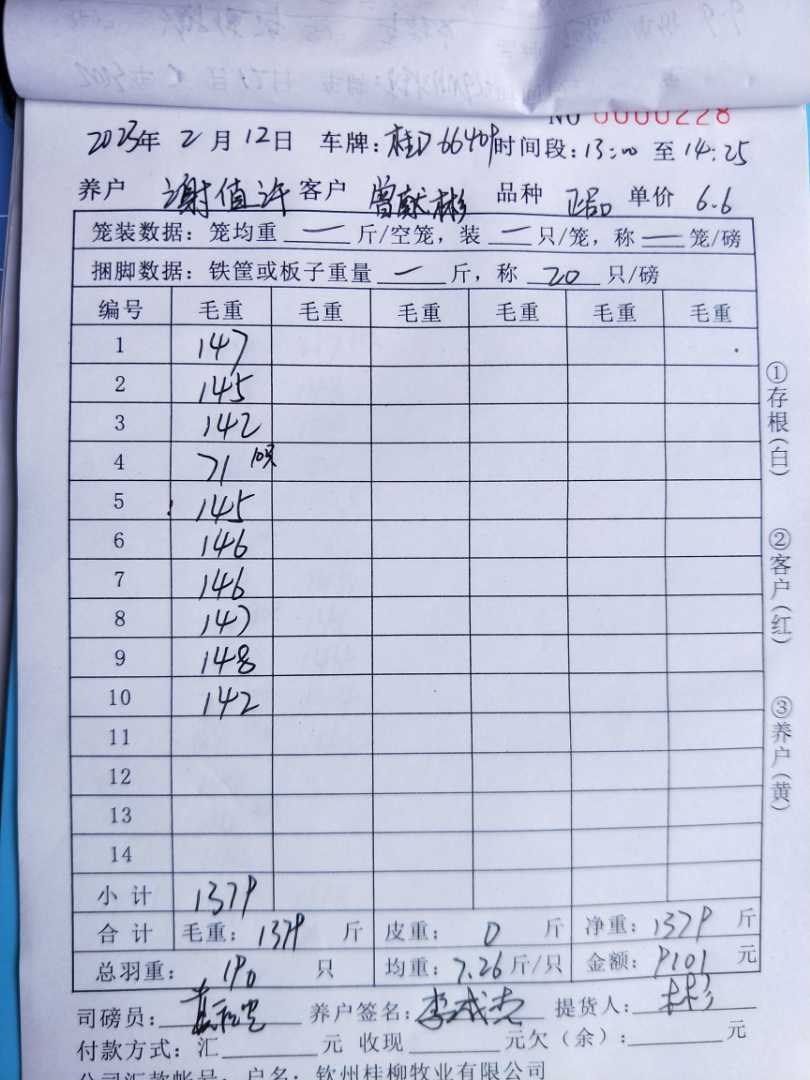 NO 0000228
2023年 2 月 12日 车牌:桂D66409时间段:13:00 至 14:25
养户 谢值许 客户 曾献彬 品种 正品 单价 6.6
笼装数据: 笼均重 一 斤/空笼, 装 一 只/笼, 称 一 笼/磅
捆脚数据: 铁筐或板子重量 一 斤, 称 20 只/磅
编号 毛重 毛重 毛重 毛重 毛重 毛重
1 147
2 145
3 142
4 71 10只
5 145
6 146
7 146
8 147
9 148
10 142
11
12
13
14
小 计 1379
合 计 毛重: 1379 斤 皮重: 0 斤 净重: 1379 斤
总羽重: 190 只 均重: 7.26 斤/只 金额: 9101 元
司磅员: 养户签名: 李成贵 提货人: 彬
付款方式: 汇 元 收现 元欠(余): 元
公司汇款帐号: 户名: 钦州桂柳牧业有限公司
①存根(白)
②客户(红)
③养户(黄)